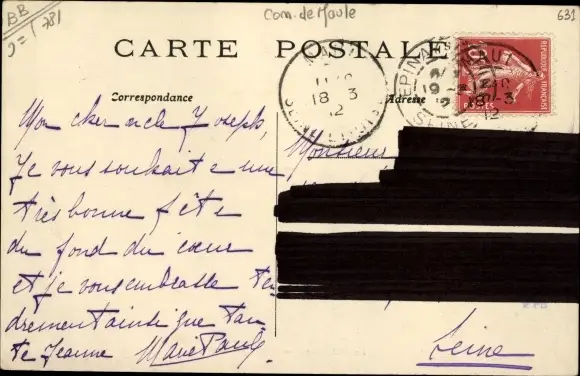 BB
Com. de Maule
631
CARTE POSTALE
Correspondance
Adresse
18 - 3
12
EPINA
SEINE
18 - 3
12
REPUBLIQUE FRANÇAISE
10
Mon cher oncle Joseph,
Je vous souhaite une
très bonne fête
du fond du cœur
et je vous embrasse ten
drement ainsi que tan
te Jeanne Marie Paule
Monsieur
Seine